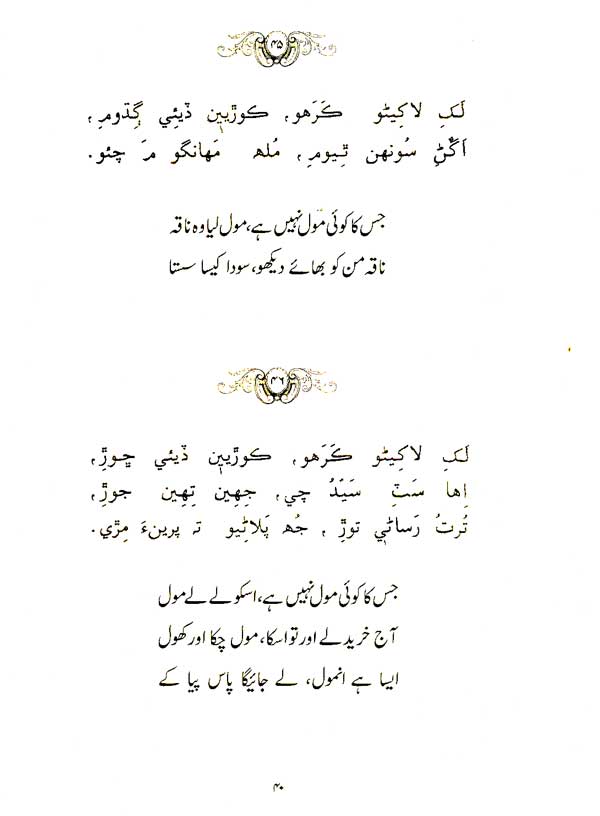 ۴۵
لَکِ لاکِيڻو ڪَرَهو، ڪوڙيين ڏيئِي گِڏومِ،
اَڱَڻِ سُونهن ٿِيومِ، مُلھ مَهانگو مَ چئو.
جس کا کوئی مول نہیں ہے، مول لیا وہ ناقہ
ناقہ من کو بھائے دیکھو، سودا کیسا سستا
۴۶
لَکِ لاکِيڻو ڪَرَهو، ڪوڙيين ڏيئي ڇوڙِ،
اِها سَٽِ سَيّدُ چي، جِهين تِهين جوڙِ،
تُرتُ رَساڻي توڙِ، جُھ پَلاڻِيو تہ پرينءَ مِڙي.
جس کا کوئی مول نہیں ہے، اسکو لے لے مول
آج خرید لے اور تو اسکا، مول چکا اور کھول
ایسا ہے انمول، لے جائیگا پاس پیا کے
۴۰